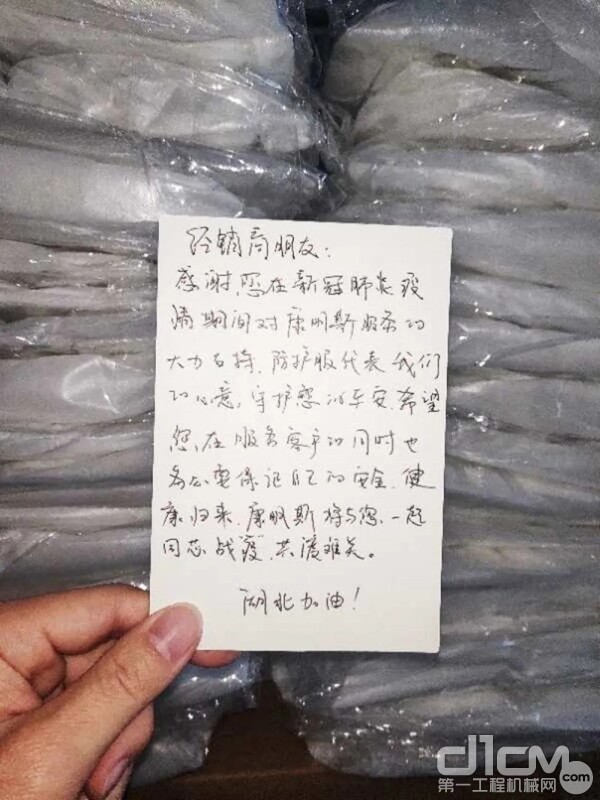 经销商朋友：
感谢您在新冠肺炎疫
情期间对康明斯服务的
大力支持，防护服代表我们
的心意，守护您的平安，希望
您在服务客户的同时也
务必要保记自己的安全，健
康归来，康明斯将与您一起
同芯战疫，共渡难关。
湖北加油！
d1cm.com
第一工程机械网